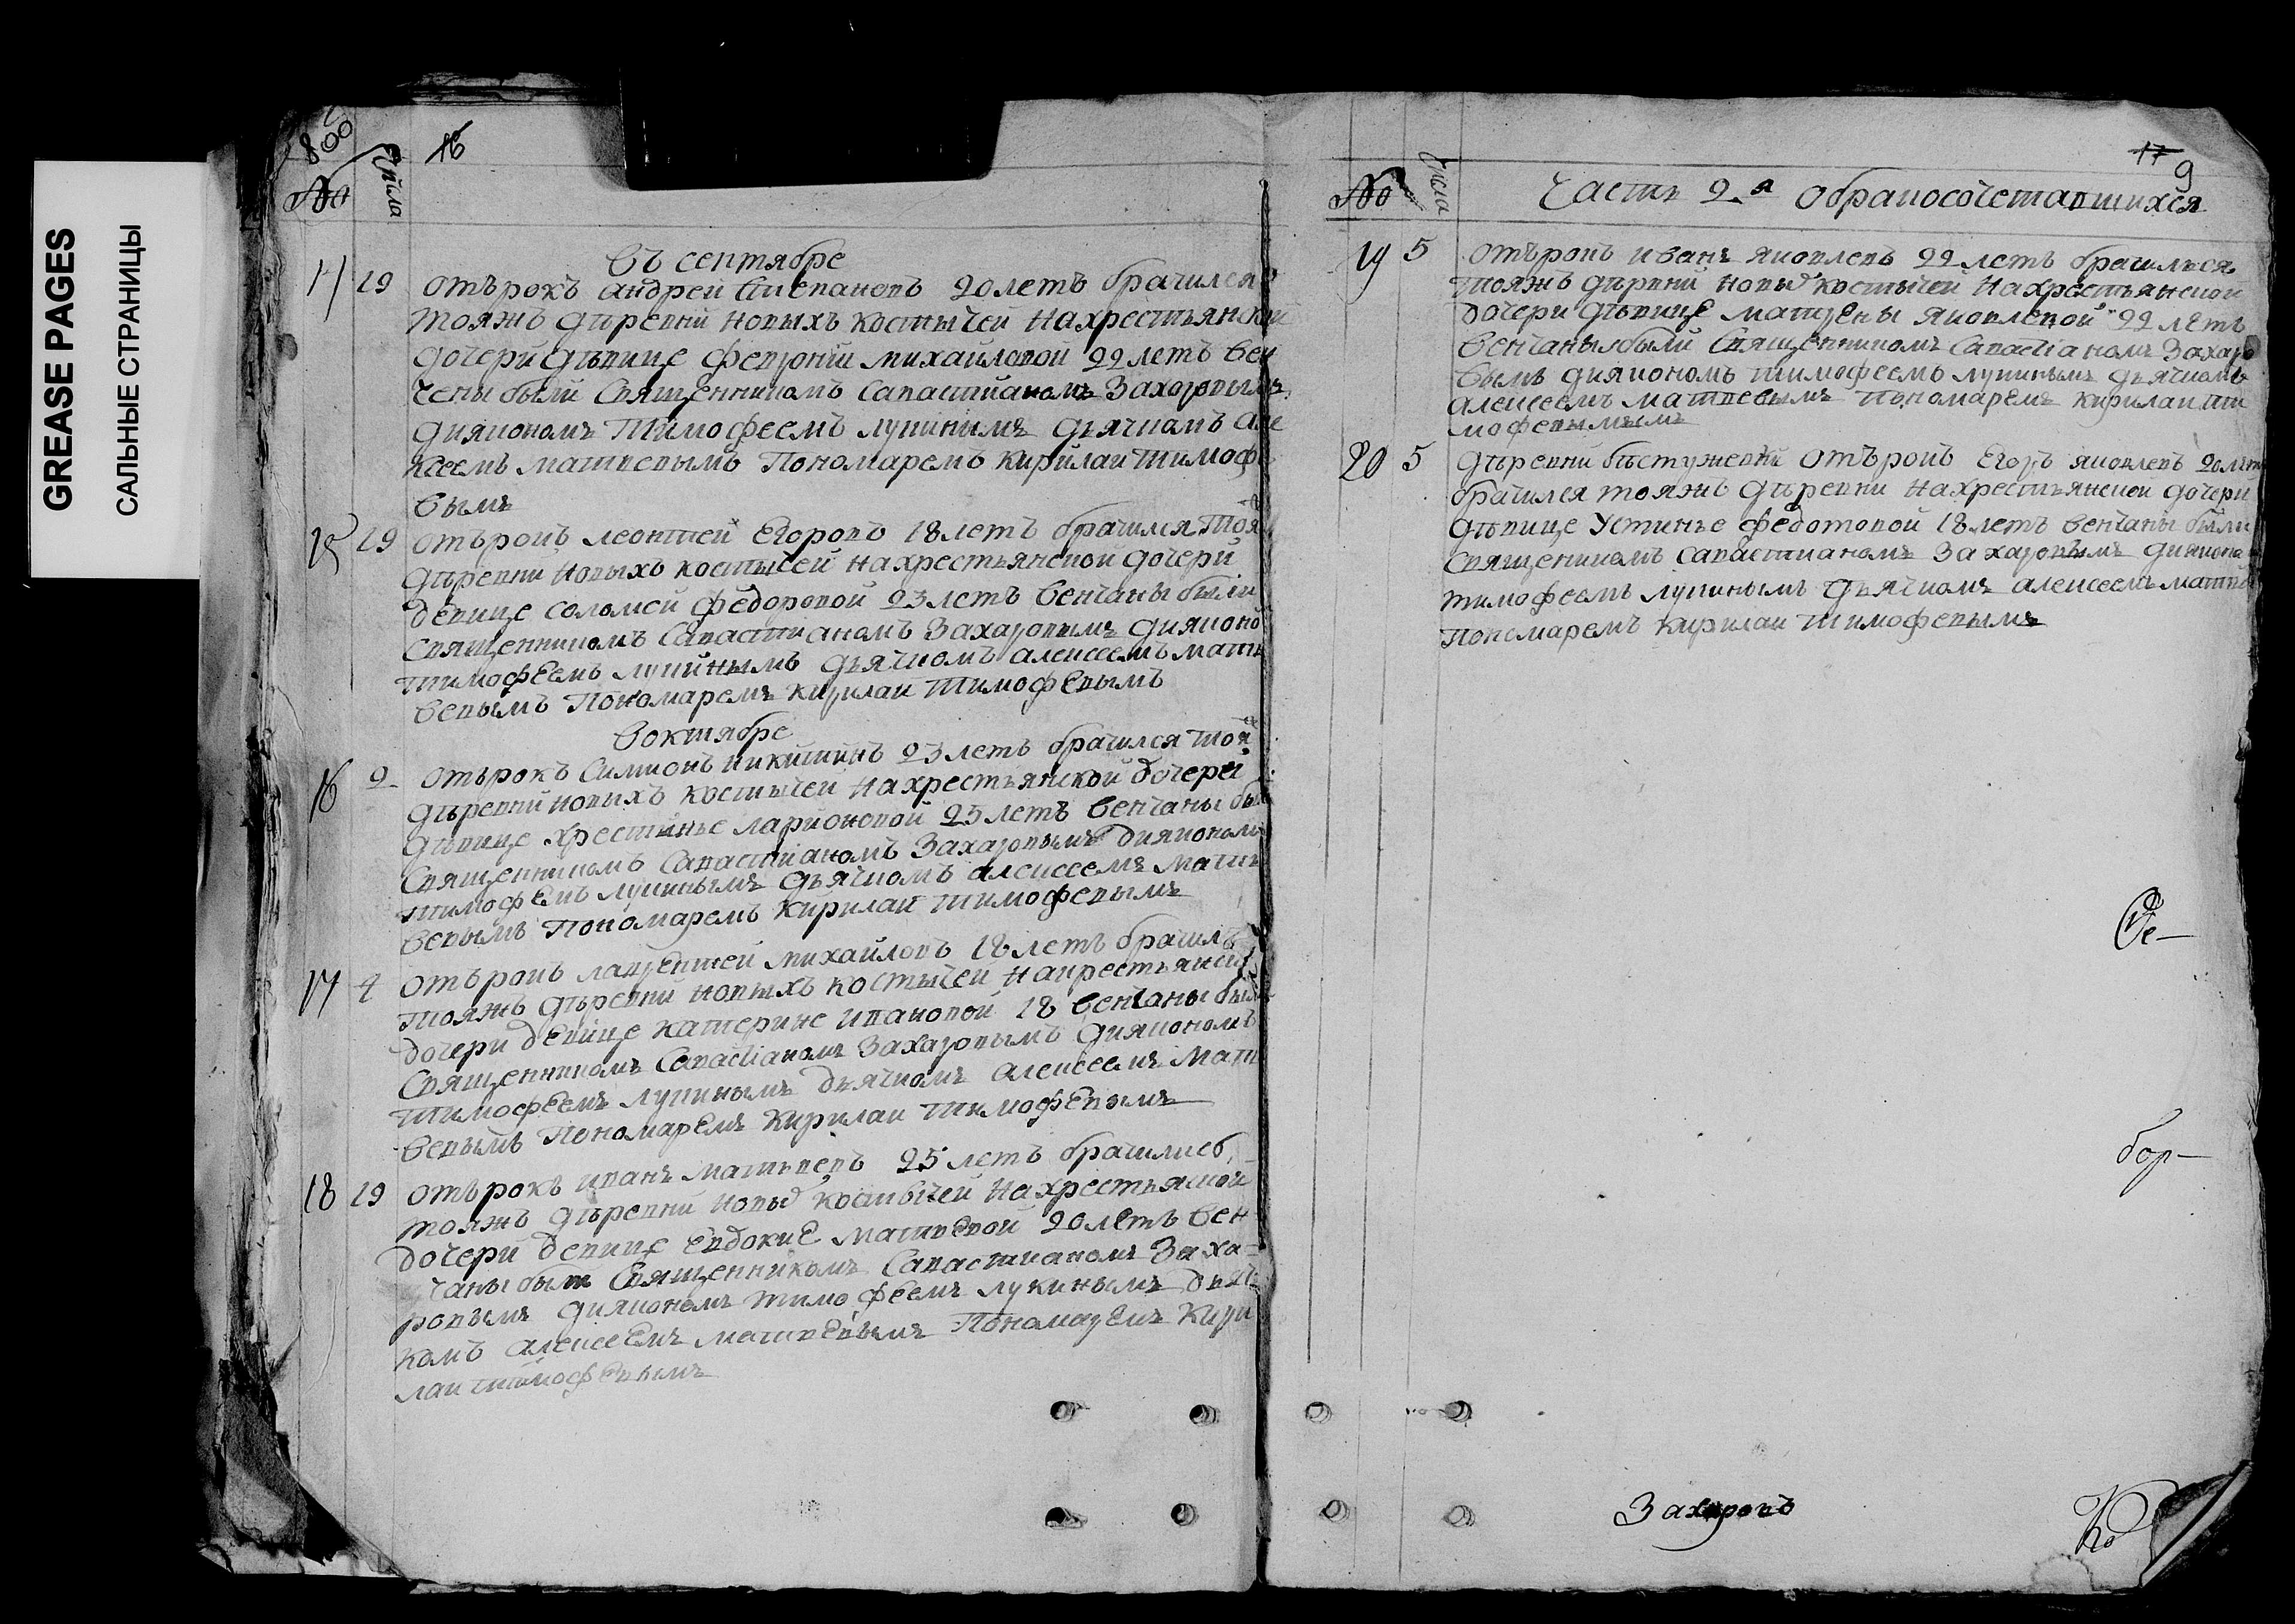 GREASE PAGES
САЛЬНЫЕ СТРАНИЦЫ
800
№ Числа
16
Въ сентябре
14 19 отърокъ андреи Степановъ 20 летъ брачился
тояжъ дѣревни новыхъ костычей на хрестьянской
дочери дѣвице февронии михайловой 22 летъ вен
чены были Священникомъ Савастианомъ Захоровымъ
диякономъ Тимофеемъ лукинымъ дьячкомъ але
ксеемъ матвевымъ Пономаремъ кирилаи тимофе
вымъ
15 19 отърокъ леонтей Егоровъ 18 летъ брачился тоя
дѣревни новыхъ костычей на хрестьянской дочери
девице соломеи федоровой 23 летъ венчаны были
Священникомъ Савастианомъ Захаровымъ диякono
тимофеемъ лукинымъ дьячкомъ алексеемъ матв
вевымъ Пономаремъ кирилаи тимофевымъ
Воктябре
16 2 отърокъ Симионъ никитинъ 23 летъ брачился тоя
дѣревни новыхъ костычей на хрестьянской дочери
дѣвице хрестинье ларионовой 25 летъ венчаны бы
Священникомъ Савастианомъ Захаровымъ диякономъ
тимофемъ лукинымъ дьячкомъ алексеемъ матв
вевымъ Пономаремъ кирилаи тимофевымъ
17 4 отърокъ лаврентей михайловъ 18 летъ брачилъ
тояжъ дѣревни новыхъ костычей на крестьянск
дочери девице катерине ивановой 18 венчаны был
Священникомъ Савастианомъ Захаровымъ диякономъ
тимофеемъ лукинымъ дьячкомъ алексеемъ матв
вевымъ Пономаремъ Кирилаи тимофевымъ
18 19 отърокъ иванъ матвевъ 25 летъ брачилися
тояжъ дѣревни новых костычей на хрестьянской
дочери девице евдокие матвевой 20 летъ вен
чаны были Священникомъ Савастианомъ Заха
ровымъ диякономъ тимофеемъ лукинымъ дьяч
комъ алексеемъ матвевымъ Пономаремъ Кири
лаи тимофевымъ
17 9
№ Числа Часть 2я обракосочетавшихся
19 5 отърокъ иванъ яковлевъ 22 летъ брачился
тояжъ дѣревни новых костычей на хрестьянской
дочери дѣвице матрены яковлевой 22 летъ
венчаны были Священникомъ Савастианомъ Захаро
вымъ диякономъ тимофеемъ лукинымъ дьячкомъ
алексеемъ матвевымъ пономаремъ кирилаи ти
мофевымъ
20 5 дѣревни бестужевки отърокъ Егоръ яковлевъ 20 летъ
брачился тояжъ дѣревни на хрестьянской дочери
дѣвице Устинье федотовой 18 летъ венчаны были
Священикомъ савастианомъ Захаровымъ диякона
тимофеемъ лукинымъ дьячкомъ алексеемъ матве
Пономаремъ кирилаи тимофевымъ
бор-
Захаровъ